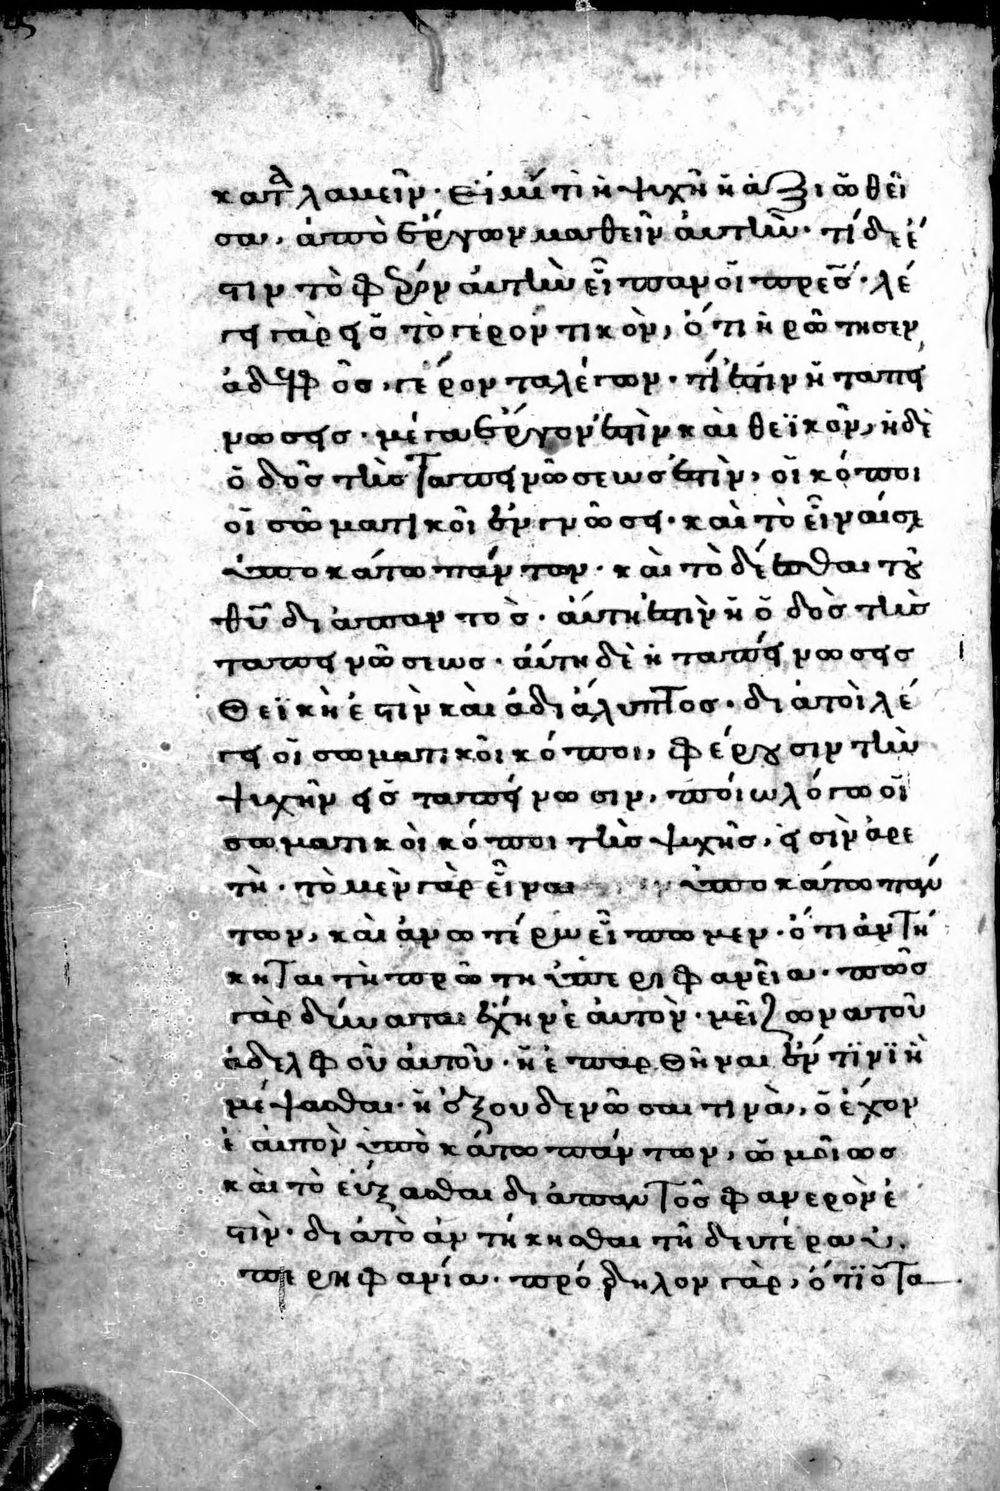 καταλαμεῖν· εἰ μή τι ἡ ψυχὴ ἡ ἀξιωθεῖ
σα, ἀπὸ ἔργων μαθεῖν ἀυτὴν· τί δὲ έ
στιν τὸ φέρον ἀυτὴν εἶπαν οἱ πρεσ· λέ
γει γὰρ εἰς τὸ γεροντικὸν, ὅτι ἠρώτησεν
ἀδελφὸς, γέρονταλέγων· τί ἐστιν ἡ ταπεί
νωσεισ· μέγα ἔργον ἐστὶν καὶ θεϊκὸν, ἡ δὲ
ὁ δὸς τῆς ταπεινώσεως ἐστὶν, οἱ κόποι
οἱ σωματικοὶ ἐν γνώσει· καὶ τὸ εἶναί σε
ὑποκάτω πάντων· καὶ τὸ δέεσθαι τοῦ
θῦ διάπαντὸς· ἁύτη ἐστὶν ἡ ὁ δὸς τῆς
ταπεινώσεως· ἁύτη δὲ ἡ ταπείνωσεισ
θεϊκὴ ἐστὶν καὶ ἀδιάλυπτος· διατοὶ λέ
γει οἱ σωματικοὶ κόποι, φέρουσιν τὴν
ψυχὴν εἰς ταπείνωσιν, ποίω λόγω οἱ
σωματικοὶ κόποι τῆς ψυχῆς, εἰσὶν ἀρε
τὴ· τὸ μὲν γὰρ εἶναι ὑποκάτω πάν
των, καὶ ἀνωτέρω εἴπωμεν· ὅτι ἀντή
κηται τὴ πρώτη ὑπερηφανεῖα· πῶς
γὰρ δύναται ἔχην ἑἀυτὸν· μεῖζων ατοῦ
ἀδελφοῦ ἀυτοῦ· ἢ ἐπαρθῆναι ἔν τϊνϊ ἢ
μέψασθαι· ἢ ἐξουδενῶσαι τινὰ, ὁ ἔχον
ἑ ἀυτὸν ὑπὸκάτω πάντων, ὡμοίως
καὶ τὸ εὔξασθαι διάπαντὸς φανερὸν ἐ
στὶν· διατὸ ἀντήκησθαι τῆ δευτέρα ὑ
περηφανία· πρόδηλον γὰρ, ὅτϊ ὁ τα